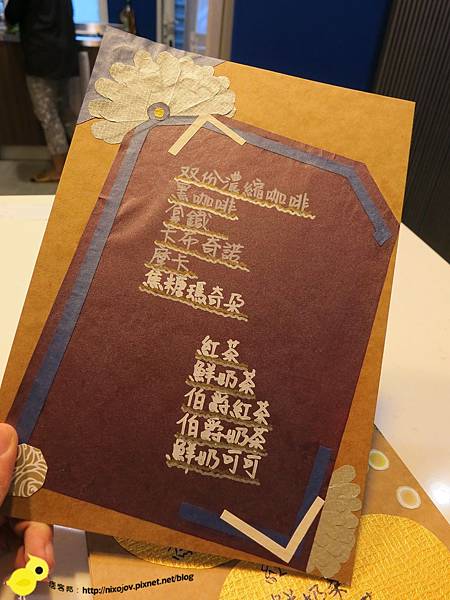 双份濃縮咖啡
黑咖啡
拿鐵
卡布奇諾
摩卡
焦糖瑪奇朵
紅茶
鮮奶茶
伯爵紅茶
伯爵奶茶
鮮奶可可
痞客邦：http://nixojov.pixnet.net/blog